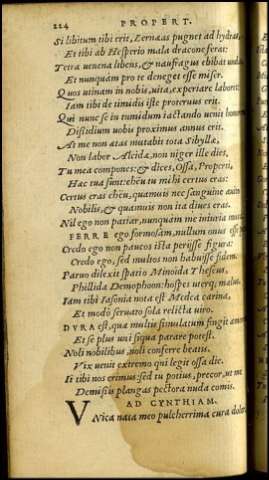 224 PROPERT.
Si libitum tibi erit, Lernæas pugnet ad hydras,
Et tibi ab Hesperio mala dracone ferat:
Tetra uenena libens, & naufragus ebibat undas,
Et nunquam pro te deneget esse miser.
Quos utinam in nobis, uita, experiare labores:
Iam tibi de timidis iste proteruus erit.
Qui nunc se in tumidum iactando uenit honorem,
Discidium uobis proximus annus erit.
At me non ætas mutabit tota Sibyllæ,
Non labor Alcidæ, non niger ille dies,
Tu mea compones: & dices, Ossa, Properti,
Hæc tua sunt: eheu tu mihi certus eras:
Certus eras eheu, quamuis nec sanguine auito
Nobilis, & quamuis non ita diues eras.
Nil ego non patiar, nunquam me iniuria mutat.
FERRE ego formosam, nullum onus esse
Credo ego non paucos ista perijsse figura:
Credo ego, sed multos non habuisse fidem.
Paruo dilexit spatio Minoida Theseus,
Phillida Demophoon: hospes uterq; malus.
Iam tibi Iasonia nota est Medea carina,
Et modò seruato sola relicta uiro.
DVRA est, quæ multis simulatum fingit amorem
Et se plus uni siqua parare potest.
Noli nobilibus, noli conferre beatis.
Vix uenit extremo qui legit ossa die.
Ii tibi nos erimus: sed tu potius, precor, ut me
Demissis plangas pectora nuda comis.
AD CYNTHIAM.
VNica nata meo pulcherrima cura dolori